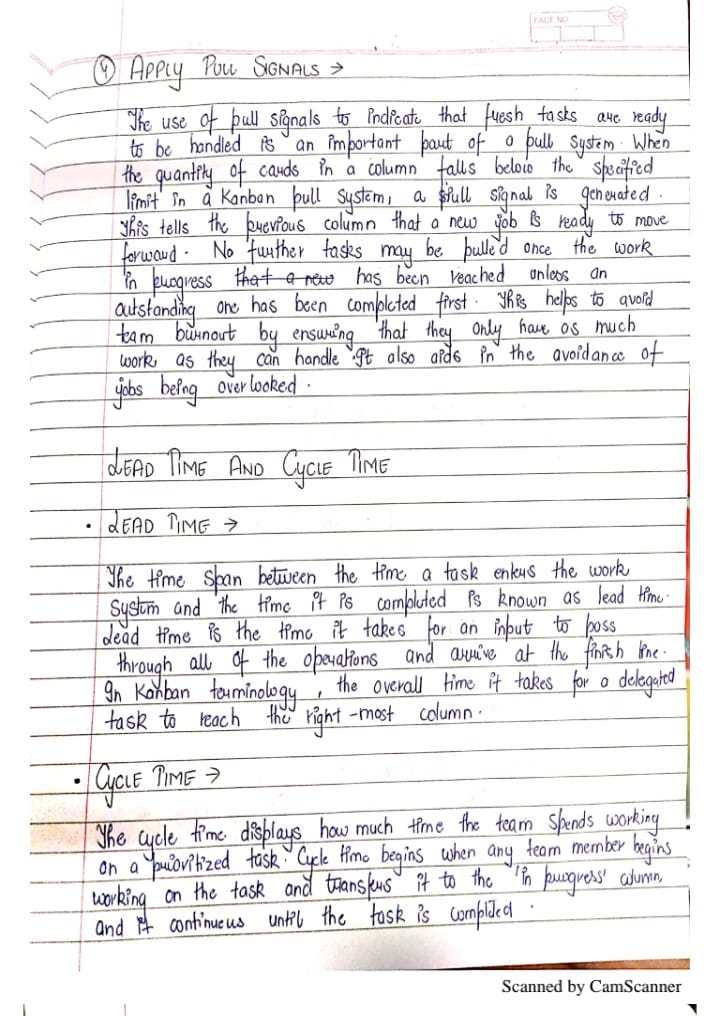 PAGE NO
④ APPLY PULL SIGNALS →
The use of pull signals to indicate that fresh tasks are ready
to be handled is an important part of a pull system. When
the quantity of cards in a column falls below the specified
limit in a Kanban pull system, a pull signal is generated.
This tells the previous column that a new job is ready to move
forward. No further tasks may be pulled once the work
in progress that a new has been reached unless an
outstanding one has been completed first. This helps to avoid
team burnout by ensuring that they only have as much
work as they can handle. It also aids in the avoidance of
jobs being overlooked.
LEAD TIME AND CYCLE TIME
• LEAD TIME →
The time span between the time a task enters the work
system and the time it is completed is known as lead time.
Lead time is the time it takes for an input to pass
through all of the operations and arrive at the finish line.
In Kanban terminology, the overall time it takes for a delegated
task to reach the right-most column.
• CYCLE TIME →
The cycle time displays how much time the team spends working
on a priovitized task. Cycle time begins when any team member begins
working on the task and transfers it to the 'in progress' column,
and it continueus until the task is completed.
Scanned by CamScanner